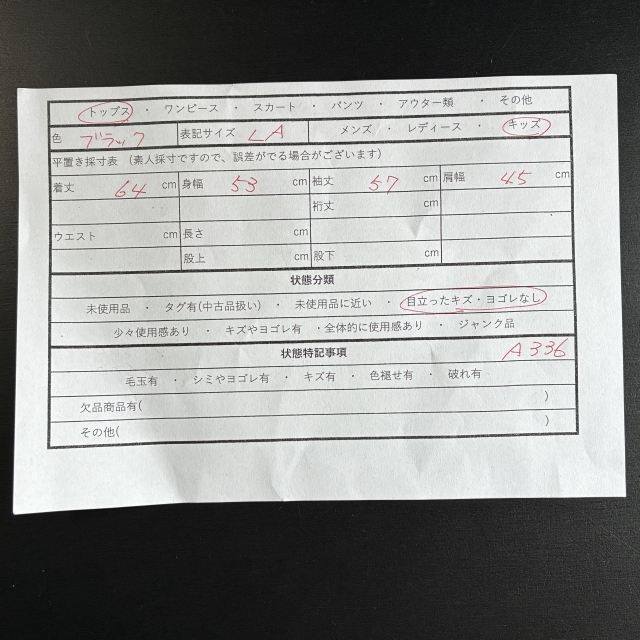 トップス ・ ワンピース ・ スカート ・ パンツ ・ アウター類 ・ その他
色 ブラック 表記サイズ LA メンズ ・ レディース ・ キッズ
平置き採寸表 (素人採寸ですので、誤差がでる場合がございます)
着丈 64 cm 身幅 53 cm 袖丈 57 cm 肩幅 45 cm
裄丈 cm
ウエスト cm 長さ cm
股上 cm 股下 cm
状態分類
未使用品 ・ タグ有(中古品扱い) ・ 未使用品に近い ・ 目立ったキズ・ヨゴレなし
少々使用感あり ・ キズやヨゴレ有 ・全体的に使用感あり ・ ジャンク品
状態特記事項 A336
毛玉有 ・ シミやヨゴレ有 ・ キズ有 ・ 色褪せ有 ・ 破れ有
欠品商品有( )
その他( )